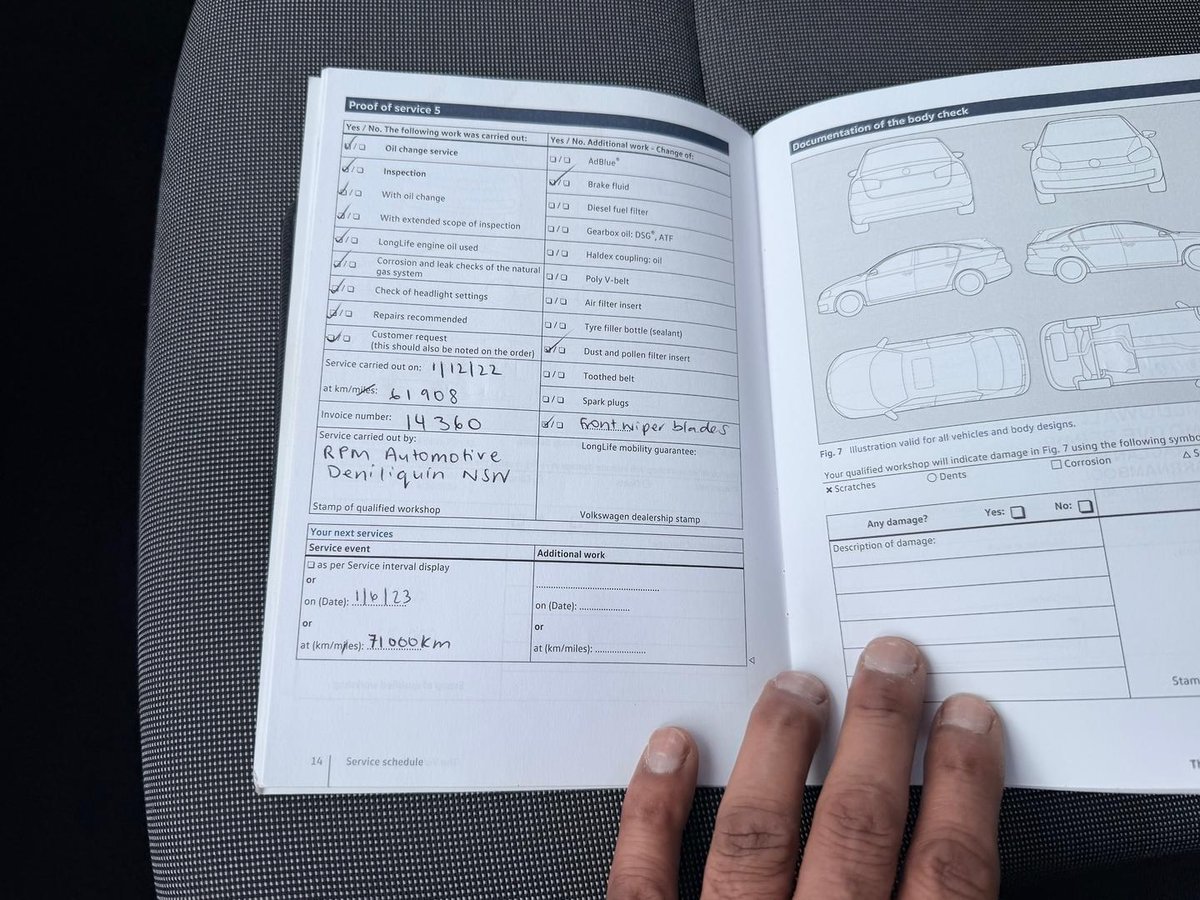 Proof of service 5
Yes / No. The following work was carried out:
Oil change service
Inspection
With oil change
With extended scope of inspection
LongLife engine oil used
Corrosion and leak checks of the natural
gas system
Check of headlight settings
Repairs recommended
Customer request
(this should also be noted on the order)
Service carried out on: 1/12/22
at km/miles: 61908
Invoice number: 14360
Service carried out by:
RPM Automotive
Deniliquin NSW
Stamp of qualified workshop
Yes / No. Additional work - Change of:
AdBlue®
Brake fluid
Diesel fuel filter
Gearbox oil: DSG®, ATF
Haldex coupling: oil
Poly V-belt
Air filter insert
Tyre filler bottle (sealant)
Dust and pollen filter insert
Toothed belt
Spark plugs
Front wiper blades
LongLife mobility guarantee:
Volkswagen dealership stamp
Your next services
Service event
as per Service interval display
or
on (Date): 1/6/23
or
at (km/miles): 71000km
Additional work
on (Date):
or
at (km/miles):
14 Service schedule
Documentation of the body check
Fig. 7 Illustration valid for all vehicles and body designs.
Your qualified workshop will indicate damage in Fig. 7 using the following
Scratches
Dents
Corrosion
Any damage? Yes: No:
Description of damage: